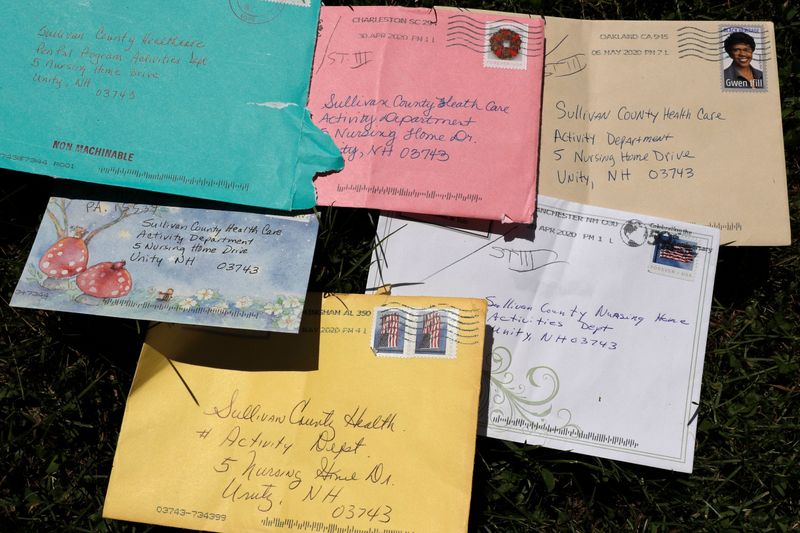 Sullivan County Healthcare
Pen Pal Program Activities Dept
5 Nursing Home Drive
Unity, NH
03743
NON MACHINABLE
CHARLESTON SC 294
30 APR 2020 PM 1 L
FOREVER
Sullivan County Heath Care
Activity Department
5 Nursing Home Dr.
Unity, NH 03743
OAKLAND CA 945
06 MAY 2020 PM 7 L
Gwen Ifill
Sullivan County Health Care
Activity Department
5 Nursing Home Drive
Unity, NH 03743
Sullivan County Health Care
Activity Department
5 Nursing Home Drive
Unity NH 03743
NCHESTER NH 030
APR 2020 PM 1 L
Celebrating the
FOREVER USA
Sullivan County Nursing Home
Activities Dept
Unity, NH 03743
NGHAM AL 350
MAY 2020 PM 4 L
Sullivan County Health.
# Activity Dept.
5 Nursing Home Dr.
Unity, NH
03743
03743-734399